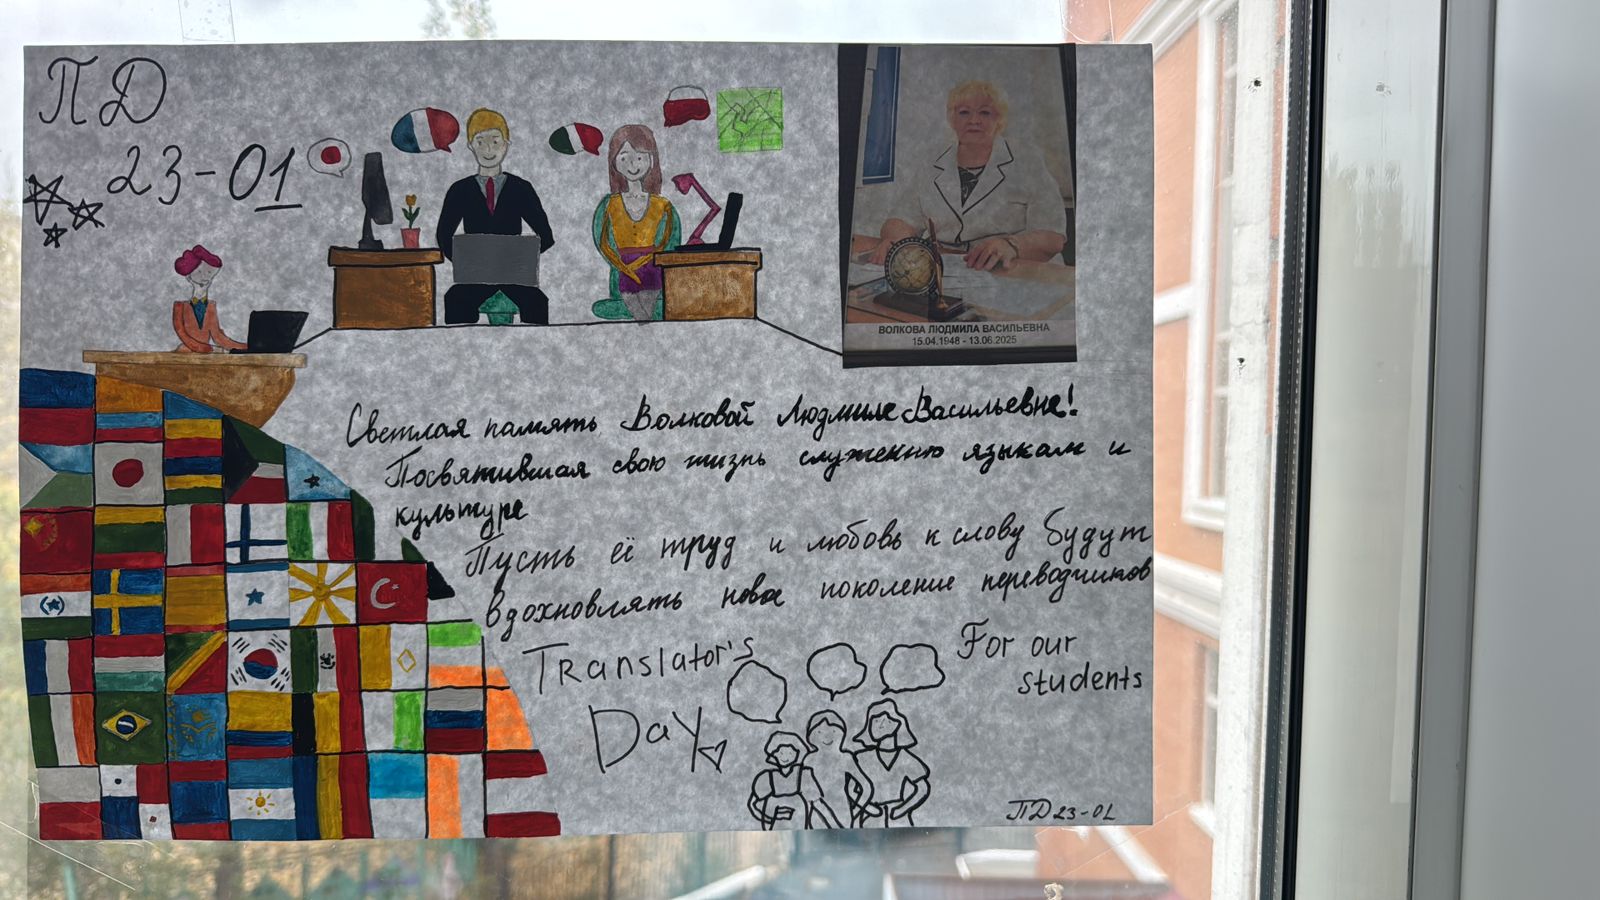 ПД
23-01
ВОЛКОВА ЛЮДМИЛА ВАСИЛЬЕВНА
15.04.1948 - 13.06.2025
Светлая память Волковой Людмиле Васильевне!
Посвятившая свою жизнь служению языкам и
культуре
Пусть её труд и любовь к слову будут
вдохновлять новое поколение переводчиков
Translator's
Day
For our
students
ПД 23-01